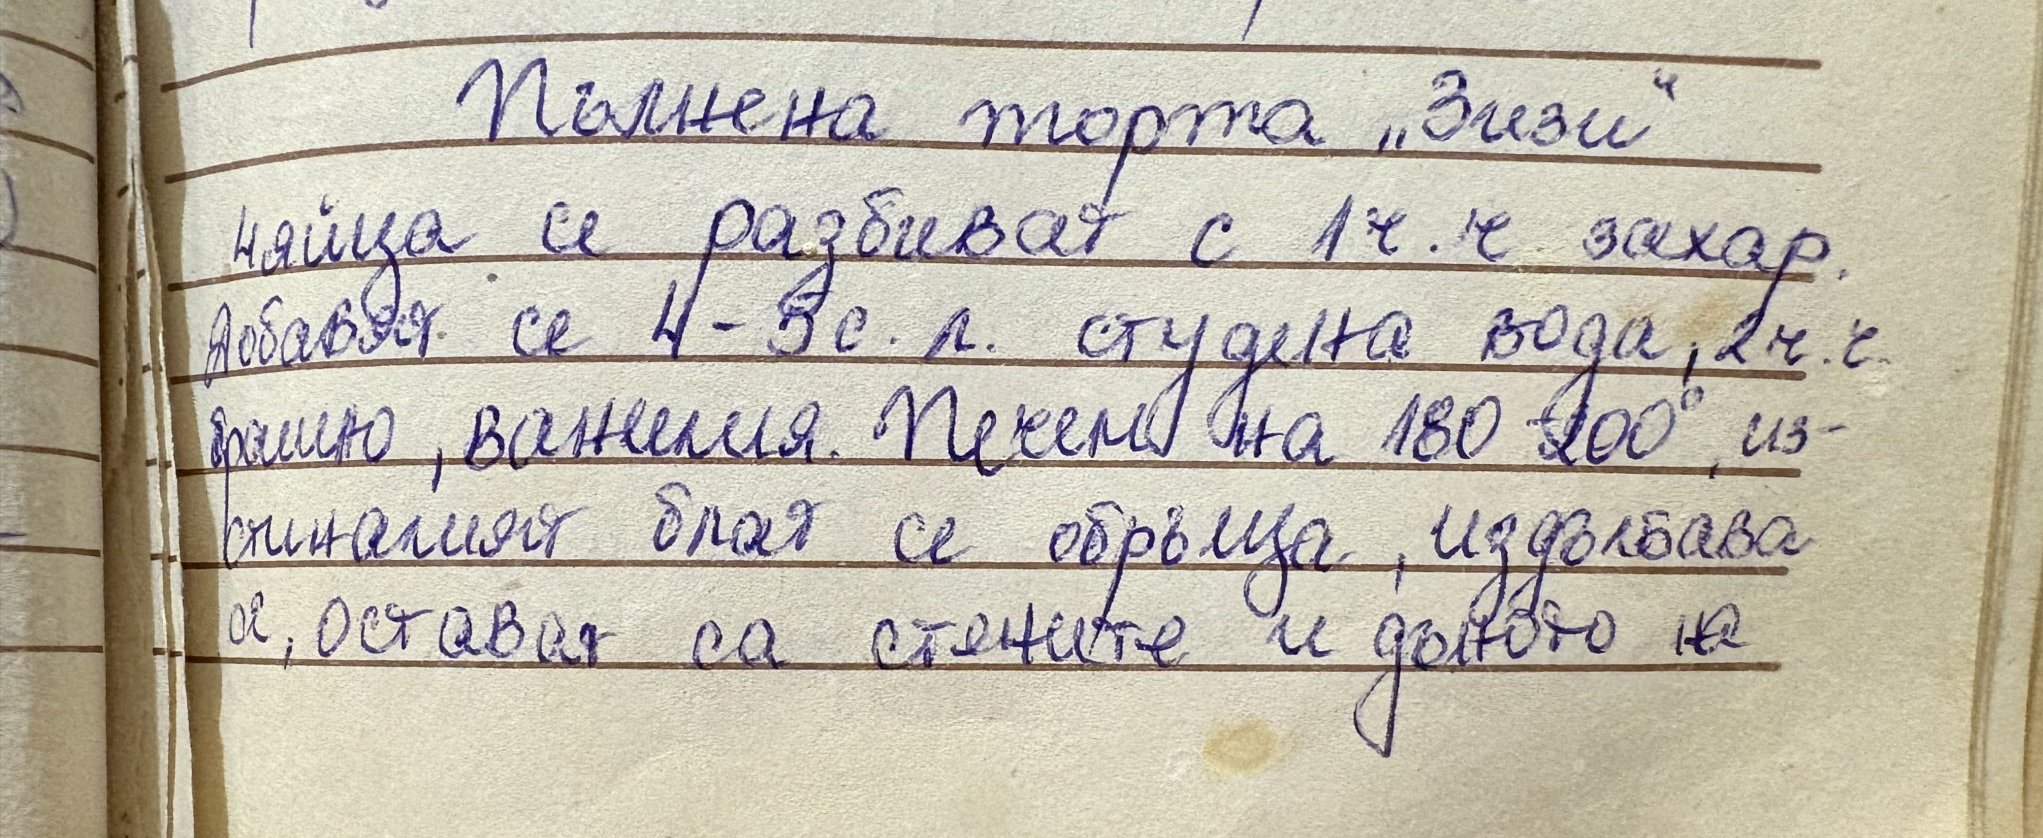 Пълнена торта „Зизи“
4яйца се разбиват с 1ч.ч захар.
Добавят се 4-5с.л. студена вода, 2ч.ч.
брашно, ванилия. Печем на 180-200°, из-
стиналият блат се обръща, издълбава
се, остават са стените и дъното на